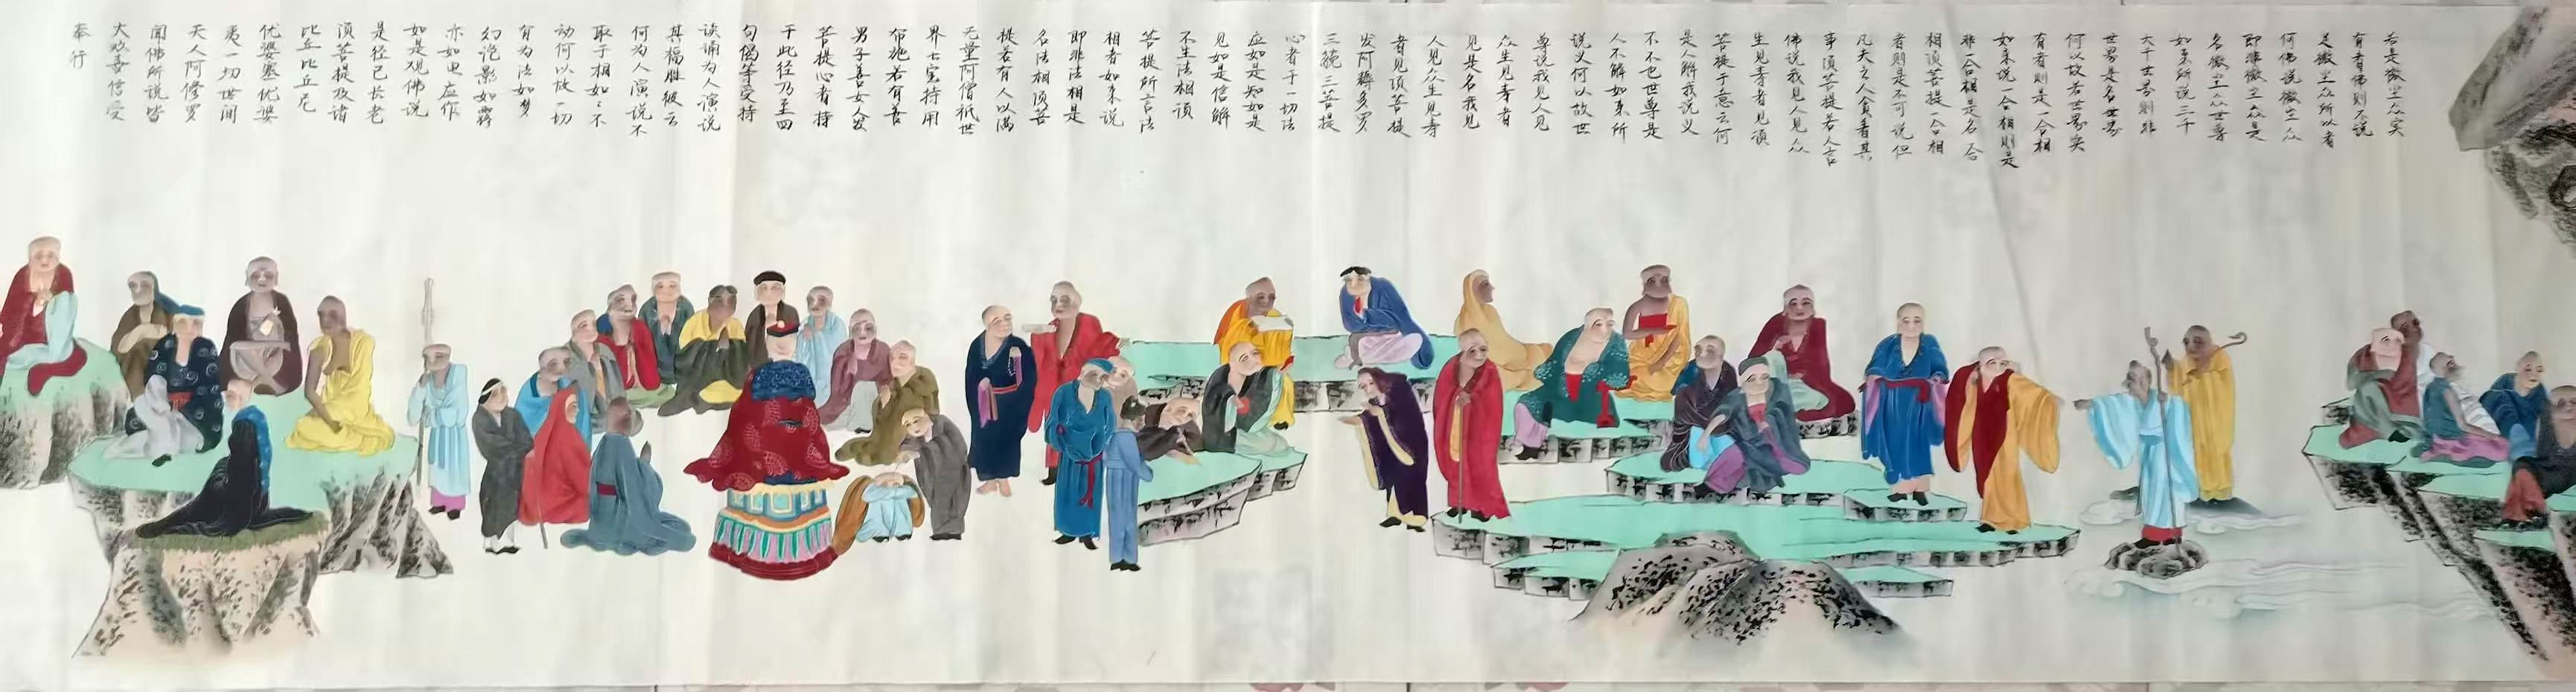 若是微尘众实
有者佛则不说
是微尘众所以者
何佛说微尘众
即非微尘众是
名微尘众世尊
如来所说三千
大千世界则非
世界是名世界
何以故若世界实
有者则是一合相
如来说一合相则是
非一合相是名一合
相须菩提一合相
者则是不可说但
凡夫之人贪着其
事须菩提若人言
佛说我见人见众
生见寿者见须
菩提于意云何
是人解我说义
不不也世尊是
人不解如来所
说义何以故世
尊说我见人见
众生见寿者
见是名我见
人见众生见寿
者见须菩提
发阿耨多罗
三藐三菩提
心者于一切法
应如是知如是
见如是信解
不生法相须
菩提所言法
相者如来说
即非法相是
名法相须菩
提若有人以满
无量阿僧祇世
界七宝持用
布施若有善
男子善女人发
菩提心者持
于此径乃至四
句偈等受持
读诵为人演说
其福胜彼云
何为人演说不
取于相如〻不
动何以故一切
有为法如梦
幻泡影如露
亦如电应作
如是观佛说
是径已长老
须菩提及诸
比丘比丘尼
优婆塞优婆
夷一切世间
天人阿修罗
闻佛所说皆
大欢喜信受
奉行